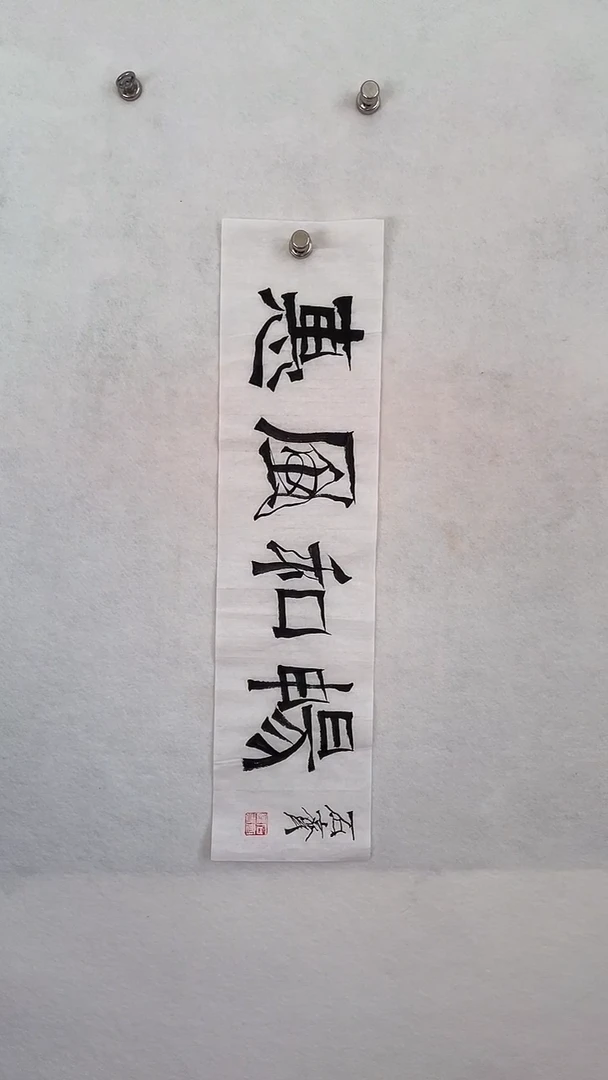 惠風和暢
石齋